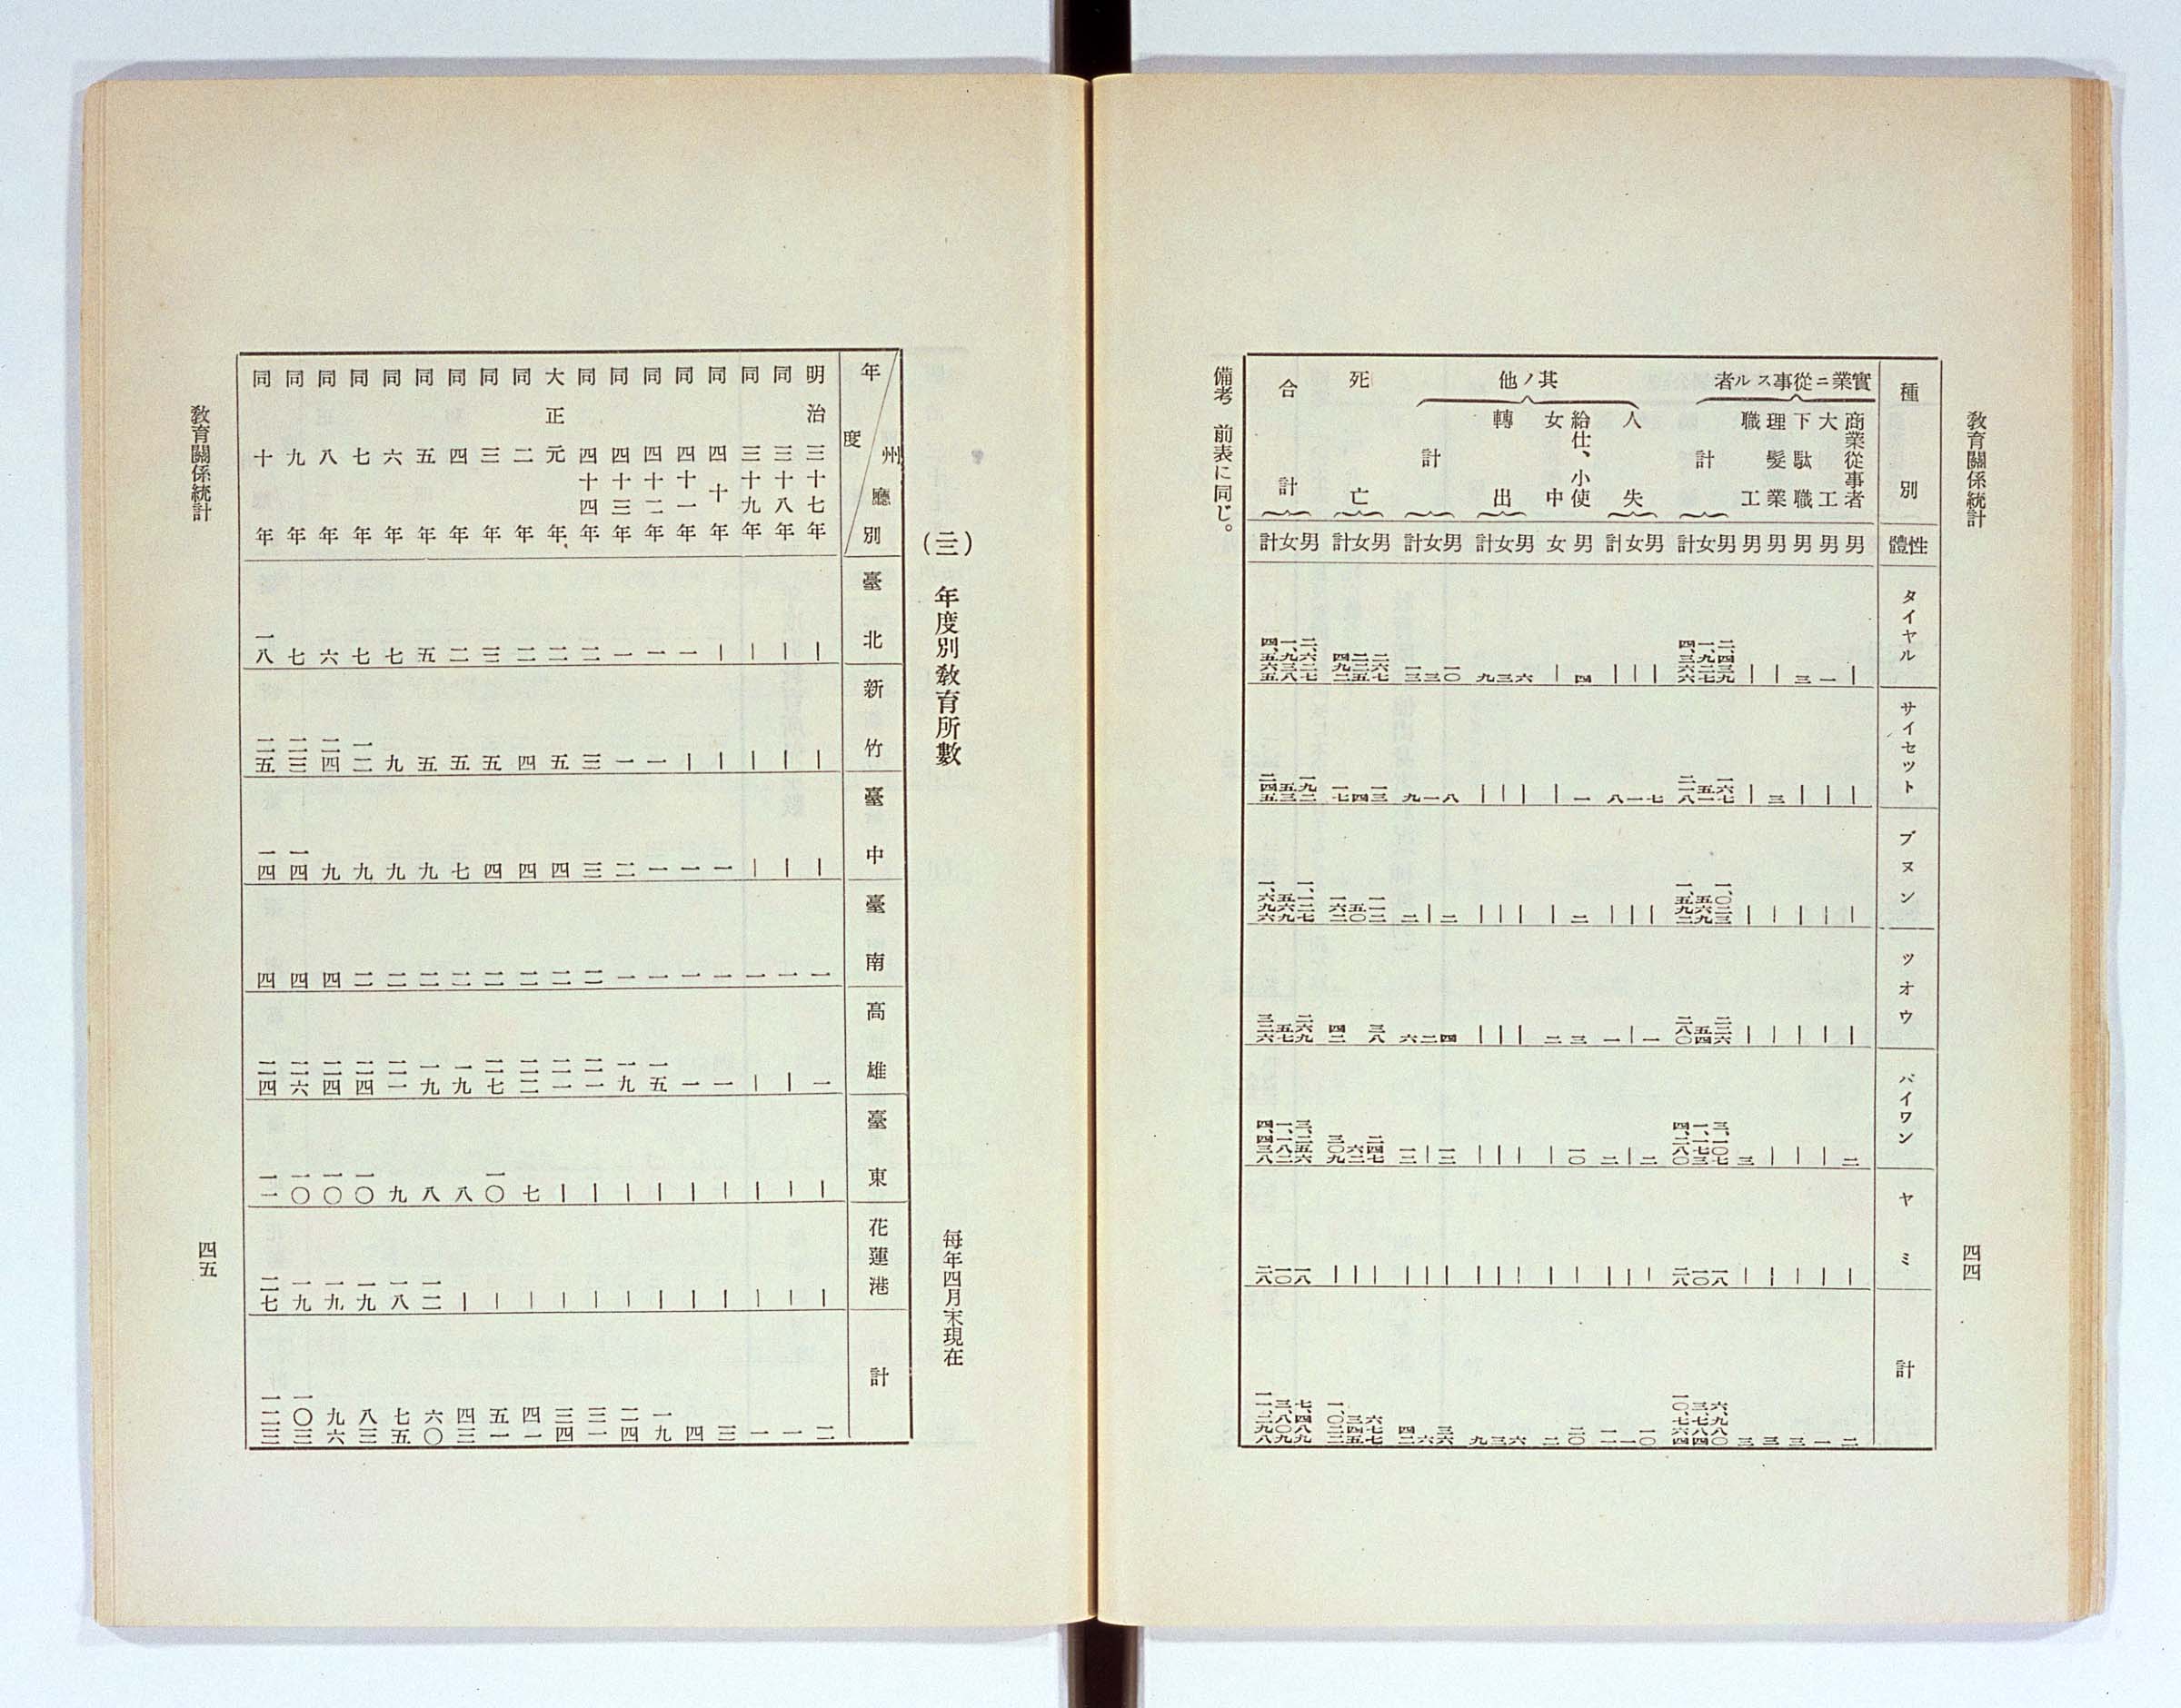 教育關係統計
四四
種別 性體 タイヤル サイセット ブヌン ツオウ パイワン ヤミ 計
實業ニ從事スル者
商業從事者 男 | | | | 二 | 二
大工 男 一 | | | | | 一
下駄職 男 三 | | | | | 三
理髮業 男 | 三 | | | | 三
職工 男 | | | | 三 | 三
計 男 二、四三九 一六七 一、〇二三 二二六 三、一〇七 一八 六、九八〇
女 一、九二七 五一 五六九 五四 一、一七三 一〇 三、七八四
計 四、三六六 二一八 一、五九二 二八〇 四、二八〇 二八 一〇、七六四
其ノ他
人失 男 | 七 | 一 二 | 一〇
女 | 一 | | | | 一
計 | 八 | 一 二 | 一一
給仕、小使 男 四 一 二 三 一〇 | 二〇
女中 女 | | | 二 | | 二
轉出 男 六 | | | | | 六
女 三 | | | | | 三
計 九 | | | | | 九
計 男 一〇 八 二 四 一二 | 三六
女 三 一 | 二 | | 六
計 一三 九 二 六 一二 | 四二
死亡 男 二六七 一三 一一二 三八 二四七 | 六七七
女 二二五 四 五〇 六二 | 三四五
計 四九二 一七 一六二 四二 三〇九 | 一、〇二二
合計 男 二、六二七 一九二 一、一二七 二六九 三、二五六 一八 七、四八九
女 一、九三八 五三 五六九 五七 一、一八二 一〇 三、八〇九
計 四、五六五 二四五 一、六九六 三二六 四、四三八 二八 一一、二九八
備考 前表に同じ。
(三) 年度別敎育所數 每年四月末現在
年度 州廳別 臺北 新竹 臺中 臺南 高雄 臺東 花蓮港 計
明治三十七年 | | | 一 一 | | 二
同三十八年 | | | 一 | | | 一
同三十九年 | | | 一 | | | 一
同四十年 | | 一 一 一 | | 三
同四十一年 一 | 一 一 一 | | 四
同四十二年 一 一 一 一 一五 | | 一九
同四十三年 一 一 二 一 一九 | | 二四
同四十四年 二 三 三 二 二一 | | 三一
大正元年 二 五 四 二 二一 | | 三四
同二年 二 四 四 二 二二 七 | 四一
同三年 三 五 四 二 二七 一〇 | 五一
同四年 二 五 七 二 一九 八 | 四三
同五年 五 五 九 二 一九 八 一二 六〇
同六年 七 九 九 二 二一 九 一八 七五
同七年 七 一二 九 二 二四 一〇 一九 八三
同八年 六 二四 九 四 二四 一〇 一九 九六
同九年 七 二三 一四 四 二六 一〇 一九 一〇三
同十年 一八 二五 一四 四 二四 一一 二七 一二三
教育關係統計
四五